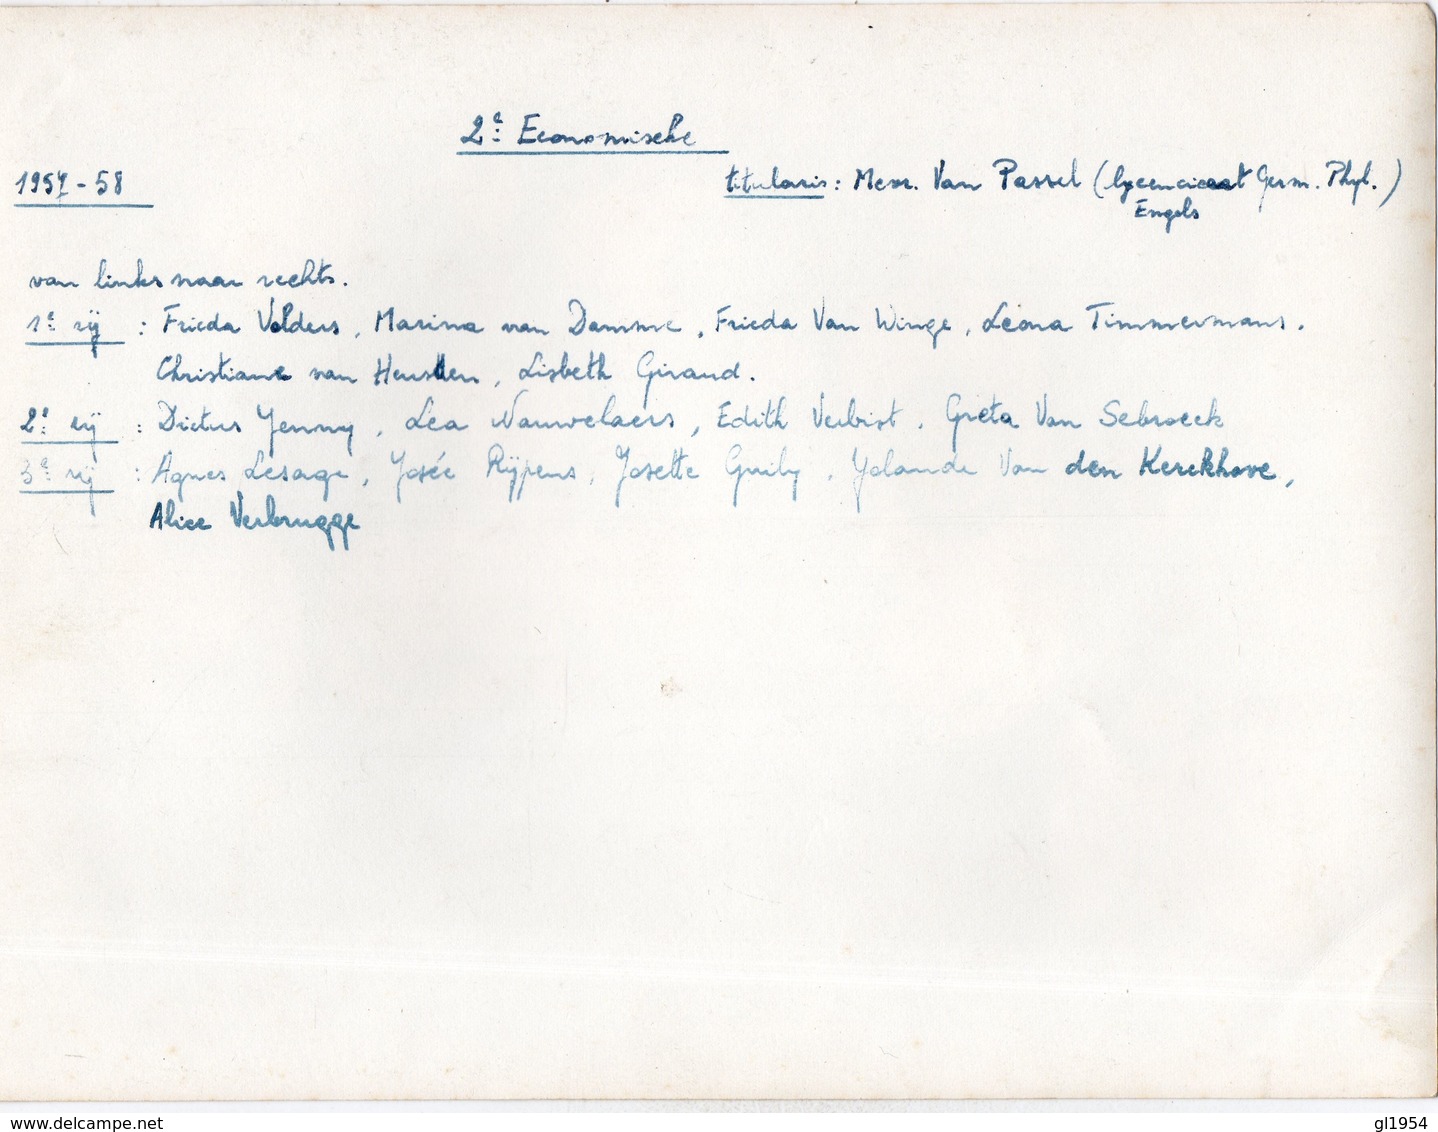 2e Economische
1957-58
titularis: Mevr. Van Passel (lycenciaat Germ. Phyl.)
Engels
van links naar rechts.
1e rij : Frieda Volders, Marina van Damme, Frieda Van Winge, Léona Timmermans.
Christiane van Heusden, Lisbeth Giraud.
2e rij : Dictus Jenny, Lea Nauwelaers, Edith Verbist. Greta Van Sebroeck
3e rij : Agnes Lesage, Josée Rijpens, Josette Guily, Yolande Van den Kerckhove,
Alice Verbrugge
www.delcampe.net
gl1954